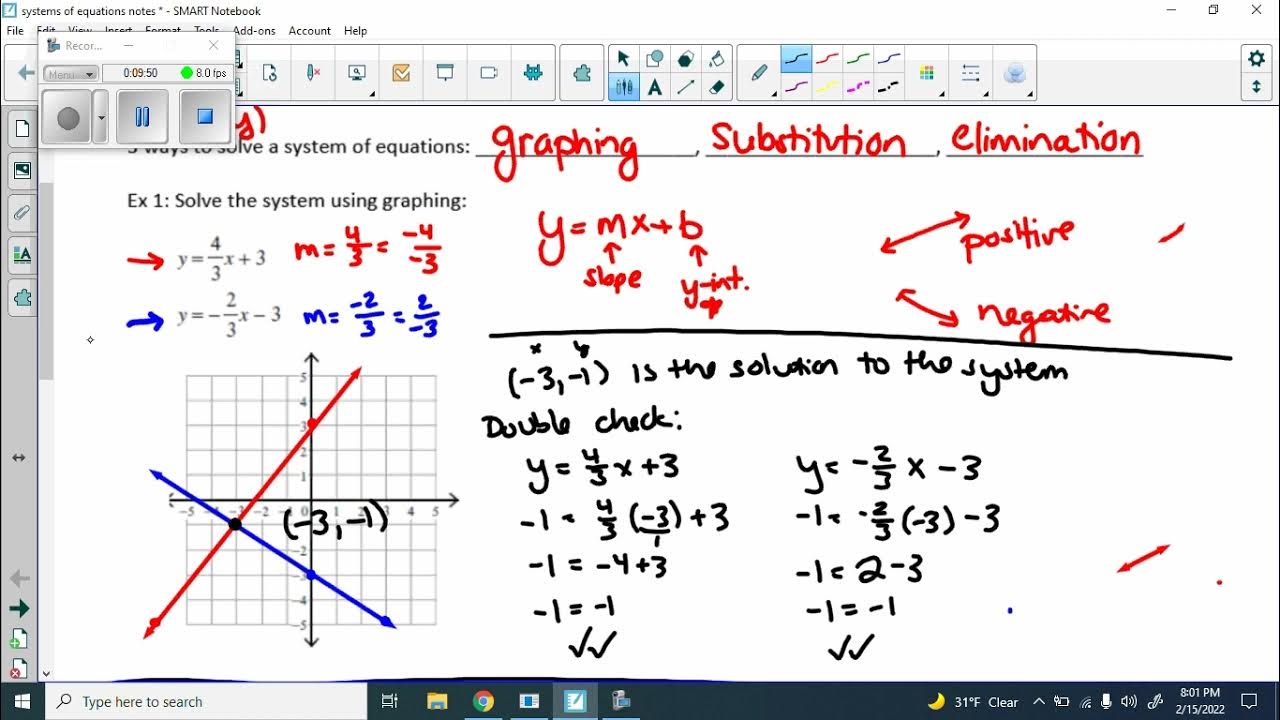 systems of equations notes * - SMART Notebook
File Edit View Insert Format Tools Add-ons Account Help
Recor...
Menu
0:09:50
8.0 fps
y)
3 ways to solve a system of equations: graphing, substitution, elimination
Ex 1: Solve the system using graphing:
y = 4/3 x + 3
m = 4/3 = -4/-3
y = -2/3 x - 3
m = -2/3 = 2/-3
y = mx + b
slope
y-int.
positive
negative
5
4
3
2
1
-5 -3 -2 -1 0 1 2 3 4 5
-2
-3
-4
-5
(-3, -1)
x y
(-3, -1) is the solution to the system
Double check:
y = 4/3 x + 3
-1 = 4/3 (-3)/1 + 3
-1 = -4 + 3
-1 = -1
y = -2/3 x - 3
-1 = -2/3 (-3) - 3
-1 = 2 - 3
-1 = -1
Type here to search
31°F Clear
8:01 PM
2/15/2022